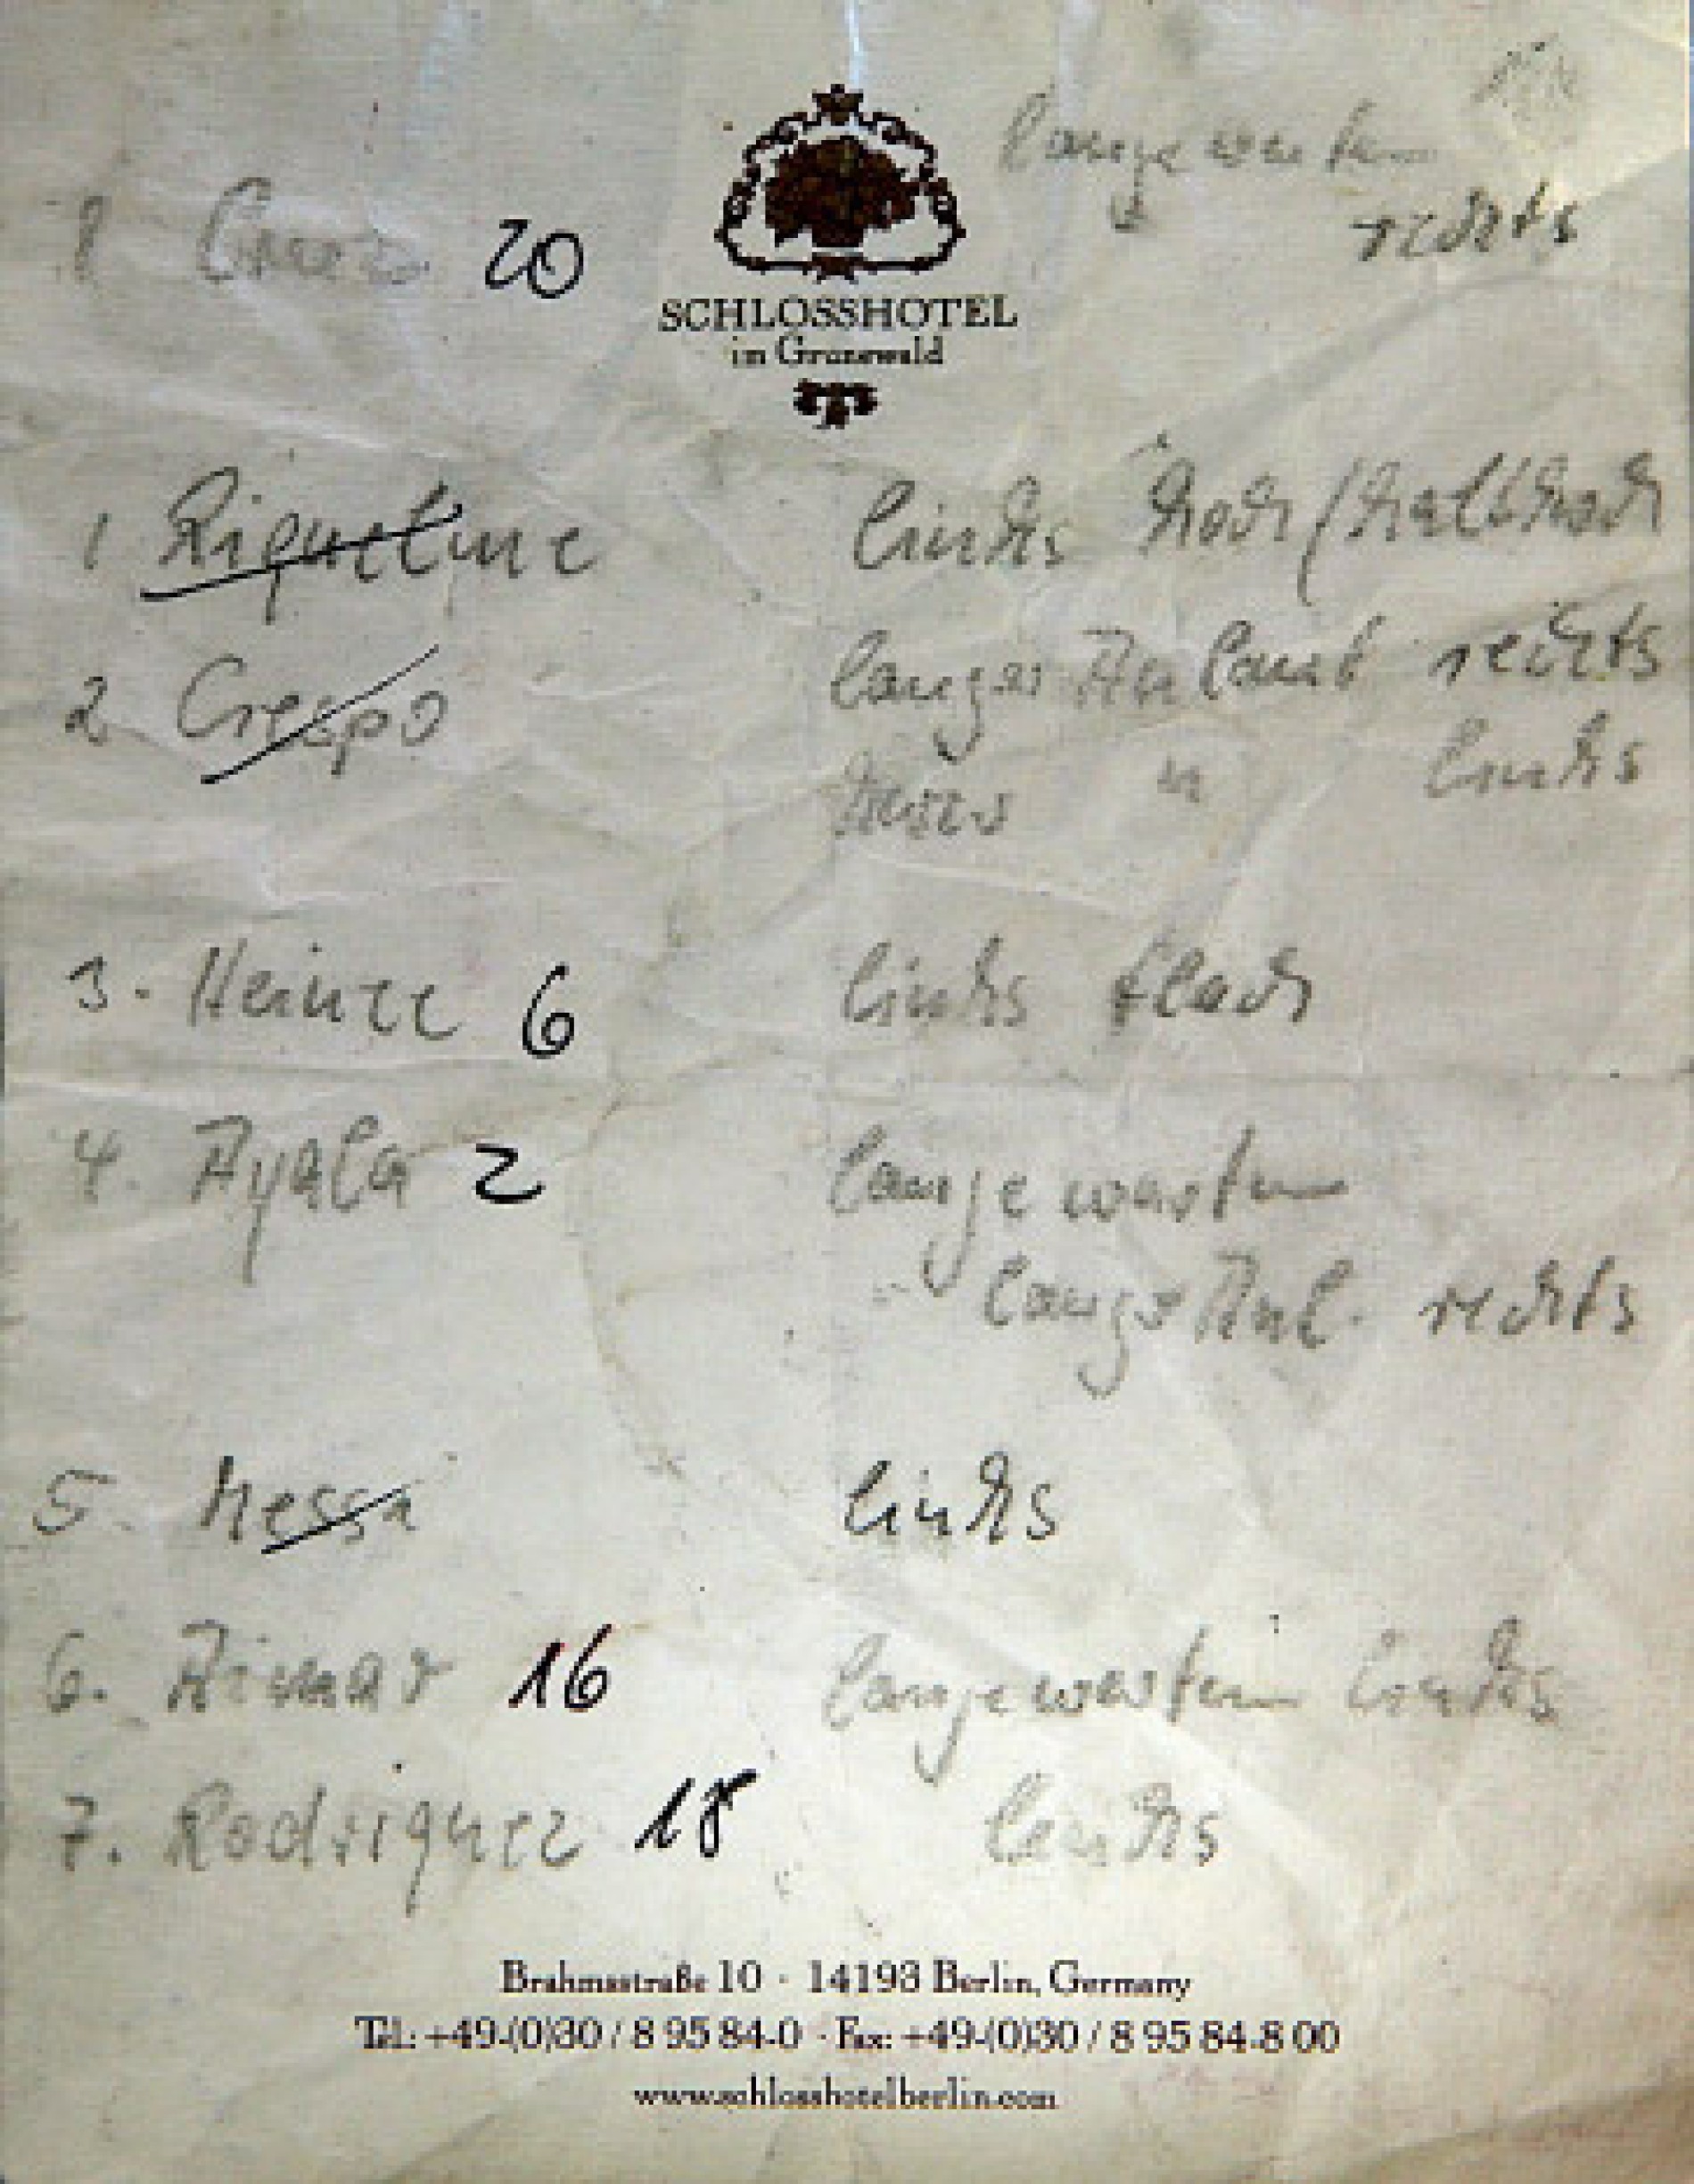 lange warten
rechts
1 Cruz 20
SCHLOSSHOTEL
im Grunewald
1 Riquelme links hoch (halbhoch
2 Crespo langer Anlauf rechts
kurzer " links
3. Heinze 6 links flach
4. Ayala 2 lange warten
langer Anl. rechts
5. Messi links
6. Aimar 16 lange warten links
7. Rodriguez 18 links
Brahmsstraße 10 · 14193 Berlin, Germany
Tel.: +49-(0)30 / 8 95 84-0 · Fax: +49-(0)30 / 8 95 84-8 00
www.schlosshotelberlin.com